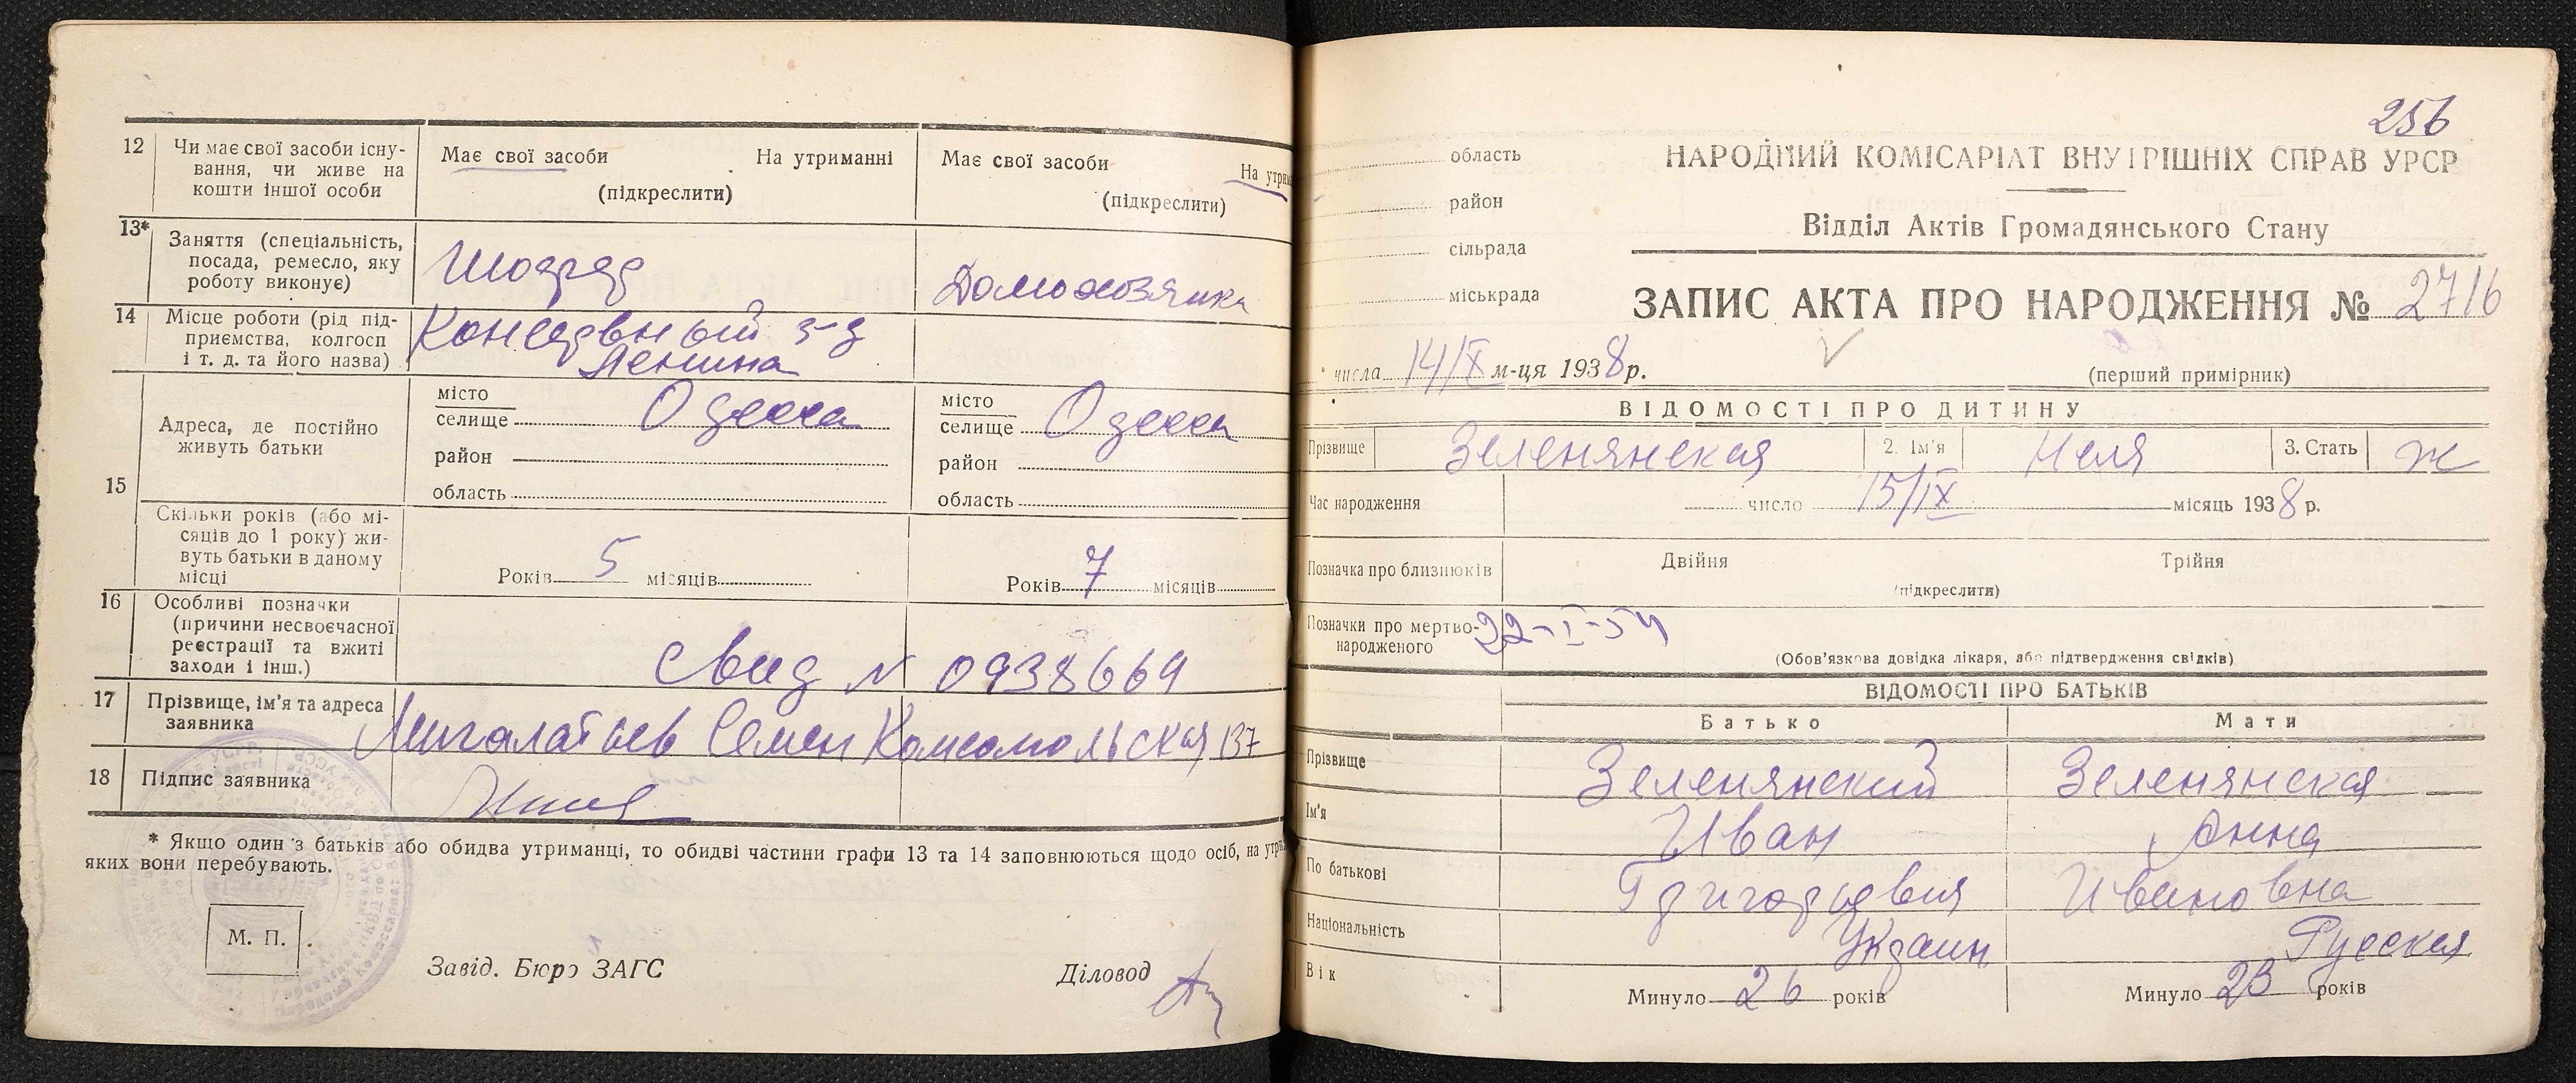 12 Чи має свої засоби існу-
вання, чи живе на
кошти іншої особи
Має свої засоби На утриманні
(підкреслити)
Має свої засоби На утрим
(підкреслити)
13* Заняття (спеціальність,
посада, ремесло, яку
роботу виконує)
Домохозяика
14 Місце роботи (рід під-
приємства, колгосп
і т. д. та його назва)
Консервный з-д
Ленина
15 Адреса, де постійно
живуть батьки
місто
селище Одесса
район
область
місто
селище Одесса
район
область
Скільки років (або мі-
сяців до 1 року) жи-
вуть батьки в даному
місці
Років 5 місяців
Років 7 місяців
16 Особливі позначки
(причини несвоєчасної
реєстрації та вжиті
заходи і інш.)
Свид N 0938669
17 Прізвище, ім'я та адреса
заявника
Семен Комсомольская 137
18 Підпис заявника
* Якщо один з батьків або обидва утриманці, то обидві частини графи 13 та 14 заповнюються щодо осіб, на утри
яких вони перебувають.
М. П.
Завід. Бюро ЗАГС Діловод
256
область
район
сільрада
міськрада
НАРОДНИЙ КОМІСАРІАТ ВНУТРІШНІХ СПРАВ УРСР
Відділ Актів Громадянського Стану
ЗАПИС АКТА ПРО НАРОДЖЕННЯ № 2716
числа 14/X м-ця 1938 р.
(перший примірник)
ВІДОМОСТІ ПРО ДИТИНУ
Прізвище Зеленянская 2. Ім'я Неля 3. Стать ж
Час народження число 15/IX місяць 1938 р.
Позначка про близнюків Двійня Трійня
(підкреслити)
Позначки про мертво-
народженого
22-I-54
(Обов'язкова довідка лікаря, або підтвердження свідків)
ВІДОМОСТІ ПРО БАТЬКІВ
Батько Мати
Прізвище Зеленянский Зеленянская
Ім'я Иван Анна
По батькові Григорьевич Ивановна
Національність Украин Русская
Вік Минуло 26 років Минуло 23 років